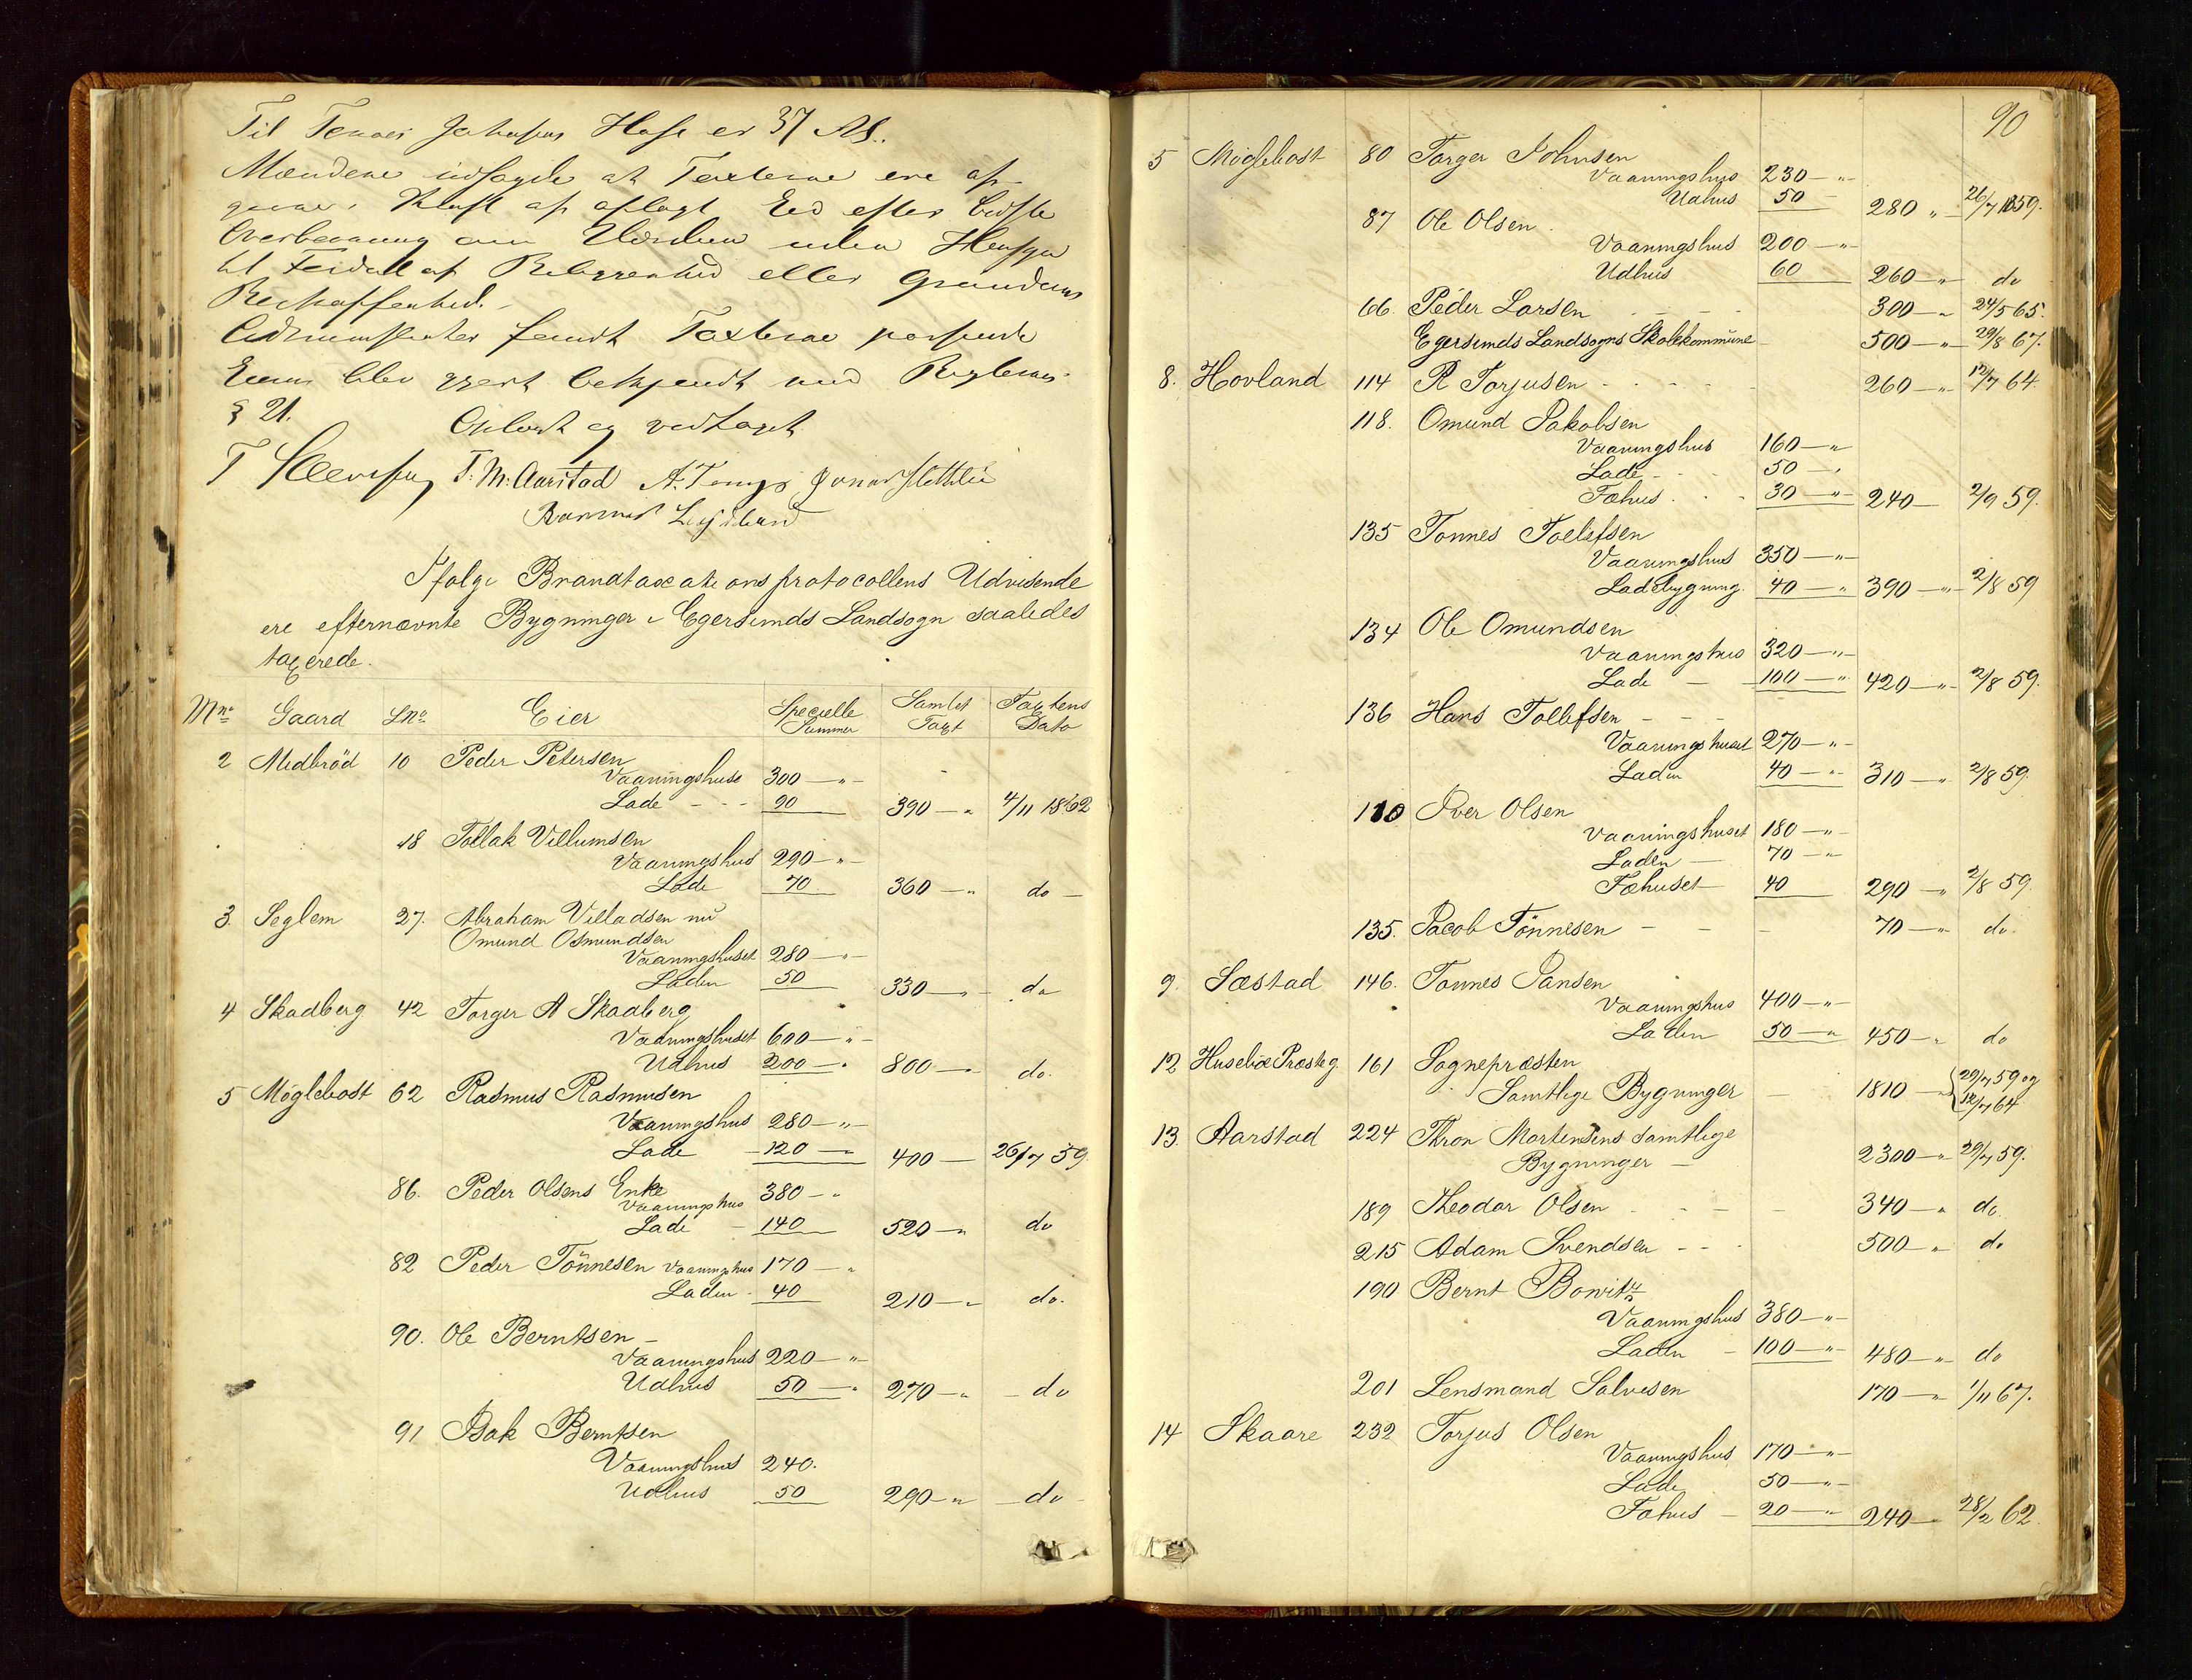 Til Tønnes Hus er 37 Al.
Mændene udsagde at Taxterne ere af-
givne i Kraft af aflagt Eed efter bedste
Overbeviisning om Værdien uden Hensyn
til Fordeel af Beliggenhed eller Grundens
Beskaffenhed.
fandt Taxterne passende
Eierne blev gjort bekjendt med Reglernes
§ 21. Oplæst og vedtaget
T. M. Aarstad
Rasmus
Ifølge Brandtaxationsprotocollens Udvisende
ere efternævnte Bygninger i Egersunds Landsogn saaledes
taxerede.
Mno Gaard LNo Eier Specielle Summer Samlet Taxt Taxtens Dato
2 Midbröd 10 Peder Petersen
Vaaningshuse 300 — „ —
Lade - - - 90 390 — „ 4/11 1862
18 Tollak Villumsen
Vaaningshus 290 — „ -
Lade 70 360 — „ do —
3. Seglem 27. Abraham Villadsen nu
Omund Osmundsen
Vaaningshuset 280 — „ —
Laden 50 330 — „ — do
4 Skadberg 42 Torger A Skadberg
Vaaningshuset 600 — „ —
Udhus 200 — „ 800 — „ do.
5 Möglebost 62 Rasmus Rasmusen
Vaaningshus 280 — „ —
Lade — 120 — 400 — 26/7 59.
86. Peder Olsens Enke
Vaaningshus 380 — „
Lade — 140 520 — „ do
82 Peder Tönnesen Vaaningshus 170 — „
Laden - 40 210 — „ do.
90. Ole Berntsen —
Vaaningshus 220 — „
Udhus 50 — „ 270 — „ — do
91 Isak Berntsen
Vaaningshus 240.
Udhus 50 290 — „ — do -
90
5 Möglebost 80 Torger Johnsen
Vaaningshus 230 — „ -
Udhus 50 — 280 „ — 26/7 1859.
87 Ole Olsen.
Vaaningshus 200 — „
Udhus 60 260 — „ do
66. Peder Larsen - - - 300 — „ 24/5 65.
Egersunds Landsogns Skolekommune 500 — „ — 29/8 67.
8. Hovland 114 R Torjusen - - - - 260 — „ — 12/7 64.
118. Omund Jakobsen
Vaaningshus 160 — „
Lade - - - 50 — „
Fæhus. - - 30 — „ — 240 — 2/9 59.
135 Tonnes Toelefsen
Vaaningshus 350 — „ —
Ladebygning. 40 — „ 390 — „ — 2/8 59
134 Ole Omundsen
Vaaningshus 320 — „ —
Lade — 100 — „ 420 — „ — 2/8 59.
136 Hans Tollefsen - - -
Vaaningshuset 270 — „ —
Laden 40 — „ 310 — „ 2/8 59.
110 Iver Olsen
Vaaningshuset 180 — „ —
Laden — 70 — „
Fæhuset — 40 290 — „ 2/8 59.
135. Jacob Tönnesen - - - 70 — „ do.
9. Sæstad 146. Tonnes Jansen
Vaaningshus 400 — „ —
Laden 50 — „ 450 — „ do
12 Husebiæ Præsteg. 161 Sognepræsten
Samtlige Bygninger — 1810 — „ 29/7 59 og
12/7 64
13. Aarstad 224 Thron Mortensens samtlige
Bygninger — 2300 — „ 29/7 59.
189 Theodor Olsen - - - - 340 — „ do.
215 Adam Svendsen - - - 500 — „ do
190 Bernt Bowitz
Vaaningshus 380 — „ —
Laden — 100 — „ — 480 — „ do
201 Lensmand Salvesen 170 — „ 1/11 67.
14 Skaare 232 Torjus Olsen
Vaaningshus 170 — „ —
Lade 50 — „ —
Fæhus — 20 — „ — 240 — 28/2 62.